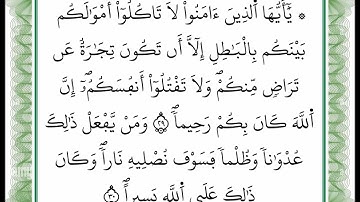 ۞ يَٰٓأَيُّهَا ٱلَّذِينَ ءَامَنُواْ لَا تَاكُلُوٓاْ أَمْوَٰلَكُم
بَيْنَكُم بِالْبَٰطِلِ إِلَّآ أَن تَكُونَ تِجَٰرَةٌ عَن
تَرَاضٍ مِّنكُمْ وَلَا تَقْتُلُوٓاْ أَنفُسَكُمْ إِنَّ
ٱللَّهَ كَانَ بِكُمْ رَحِيماً ٢٩ وَمَنْ يَّفْعَلْ ذَٰلِكَ
عُدْوَٰناً وَظُلْماً فَسَوْفَ نُصْلِيهِ نَاراً وَكَانَ
ذَٰلِكَ عَلَى ٱللَّهِ يَسِيراً ٣٠